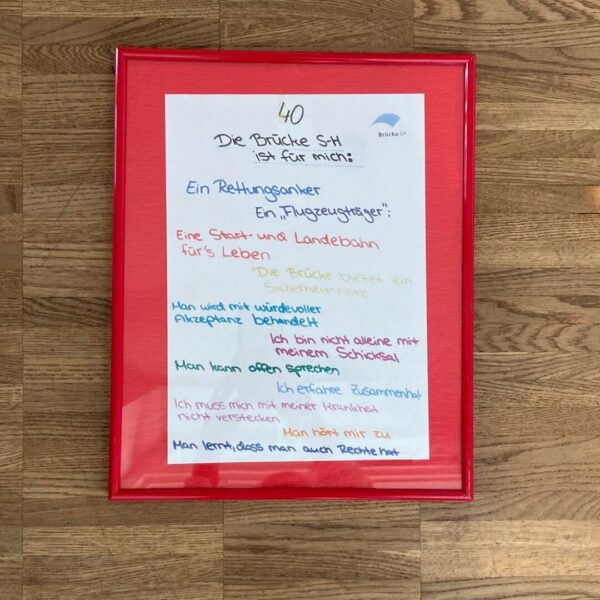 40
Brücke SH
Die Brücke S-H
ist für mich:
Ein Rettungsanker
Ein „Flugzeugträger":
Eine Start- und Landebahn
für's Leben
Die Brücke bietet ein
Sicherheitnetz
Man wird mit würdevoller
Akzeptanz behandelt
Ich bin nicht alleine mit
meinem Schicksal
Man kann offen sprechen
Ich erfahre Zusammenhalt
Ich muss mich mit meiner Krankheit
nicht verstecken
Man hört mir zu
Man lernt, dass man auch Rechte hat